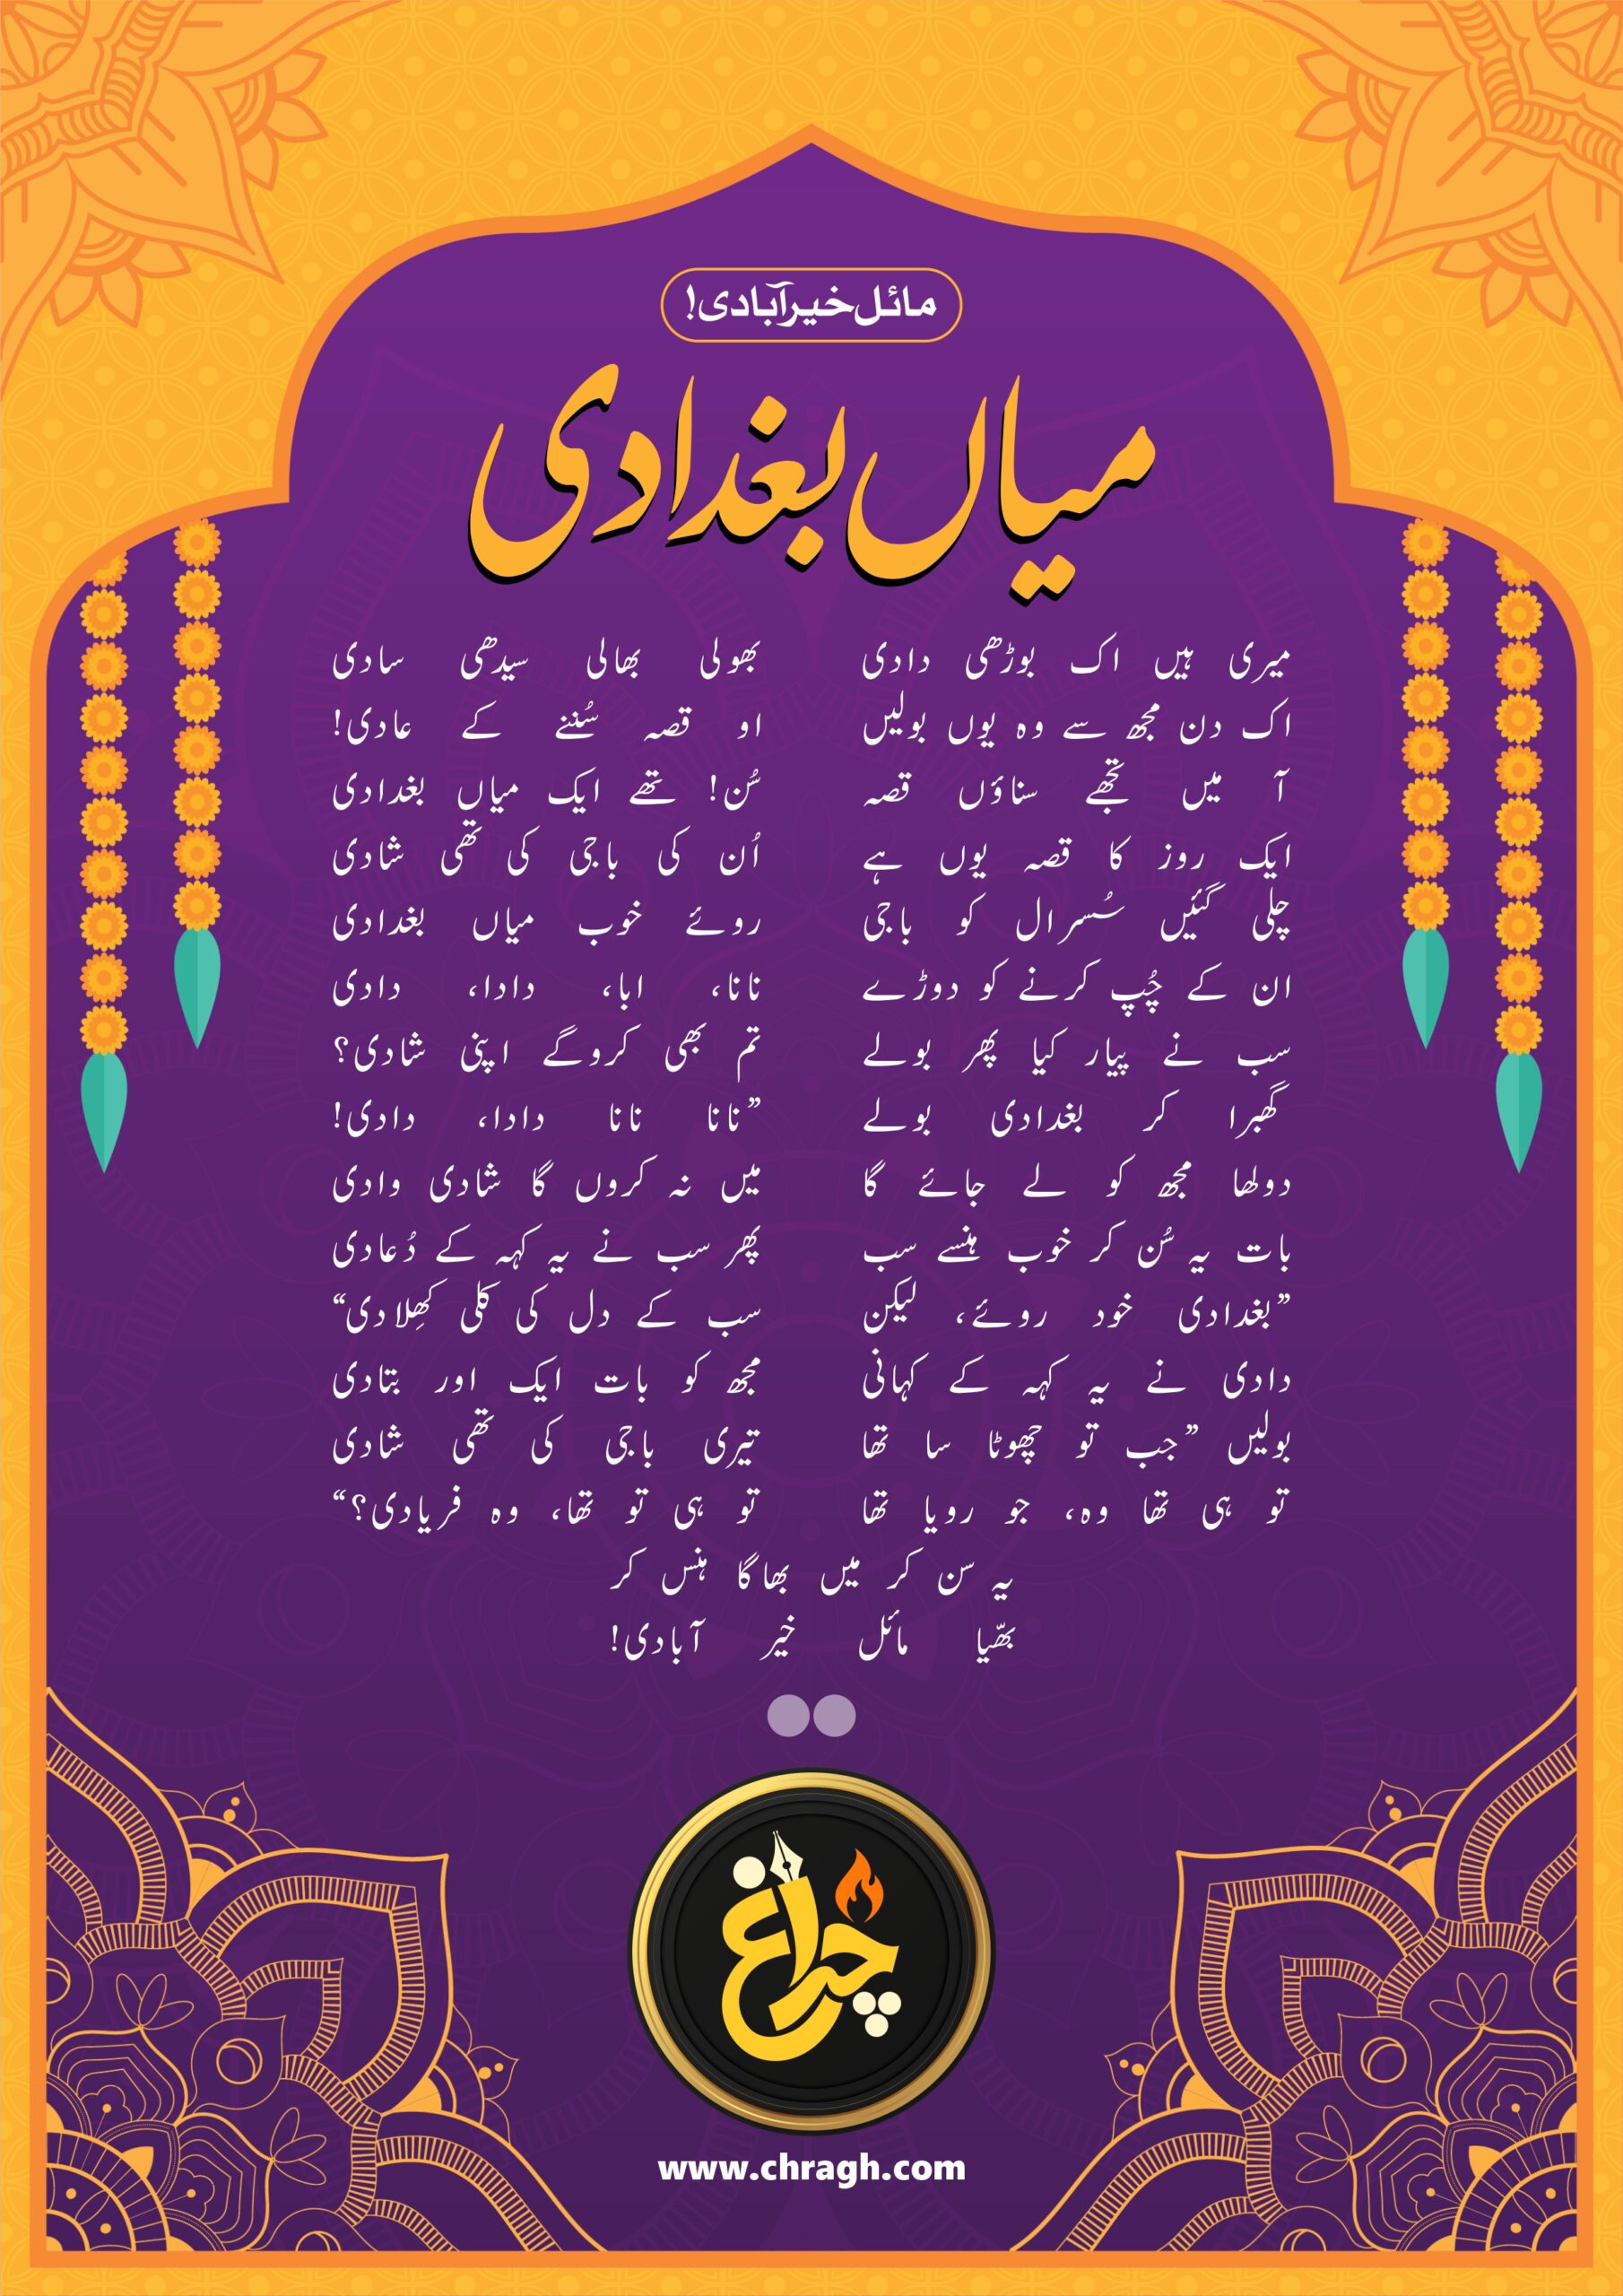 مائل خیرآبادی!
میاں بغدادی
میری ہیں اک بوڑھی دادی بھولی بھالی سیدھی سادی
اک دن مجھ سے وہ یوں بولیں او قصہ سُننے کے عادی!
آ میں تجھے سناؤں قصہ سُن! تھے ایک میاں بغدادی
ایک روز کا قصہ یوں ہے اُن کی باجی کی تھی شادی
چلی گئیں سُسرال کو باجی روئے خوب میاں بغدادی
ان کے چُپ کرنے کو دوڑے نانا، ابا، دادا، دادی
سب نے پیار کیا پھر بولے تم بھی کروگے اپنی شادی؟
گھبرا کر بغدادی بولے ”نانا نانا دادا، دادی!
دولھا مجھ کو لے جائے گا میں نہ کروں گا شادی وادی
بات یہ سُن کر خوب ہنسے سب پھر سب نے یہ کہہ کے دُعادی
”بغدادی خود روئے، لیکن سب کے دل کی کلی کھِلادی“
دادی نے یہ کہہ کے کہانی مجھ کو بات ایک اور بتادی
بولیں ”جب تو چھوٹا سا تھا تیری باجی کی تھی شادی
تو ہی تھا وہ، جو رویا تھا تو ہی تو تھا، وہ فریادی؟“
یہ سن کر میں بھاگا ہنس کر
بھّیا مائل خیر آبادی!
چراغ
www.chragh.com